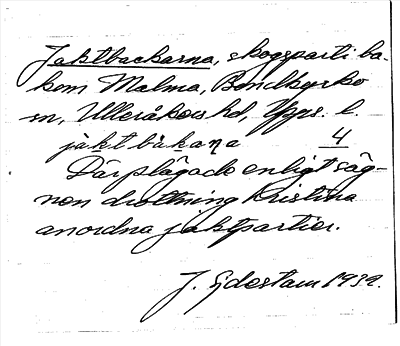 Jaktbackarna, skogsparti ba-
kom Malma, Bondkyrko
sn, Ulleråkers hd, Upps. l.
jaktbàkaṇa 4
Där plägade enligt säg-
nen drottning Kristina
anordna jaktpartier.
J. Sjöstam 1932.